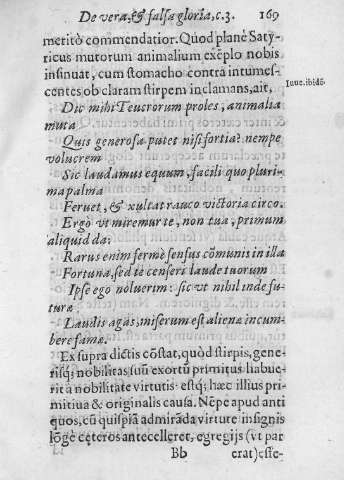 De vera, & falsa gloria, c.3. 169
meritò commendatior. Quod planè Saty-
ricus mutorum animalium exẽplo nobis
insinuat, cum stomacho contra intumes-
centes ob claram stirpem inclamans, ait,
Iuue. ibidẽ.
Dic mihi Teucrorum proles, animalia
muta
Quis generosa putet nisi fortia? nempe
volucrem
Sic laudamus equum, facili quo pluri-
ma palma
Feruet, & exultat rauco victoria circo.
Ergò vt miremur te, non tua, primum
aliquid da:
Rarus enim fermè sensus cõmunis in illa
Fortuna, sed te censeri laude tuorum
Ipse ego noluerim: sic vt nihil inde fu-
turæ
Laudis agas, miserum est alienæ incum-
bere famæ.
Ex supra dictis cõstat, quòd stirpis, gene-
risq; nobilitas suũ exortũ primitus habue-
rit a nobilitate virtutis: estq; hæc illius pri-
mitiua & originalis causa. Nẽpe apud anti
quos, cũ quispiã admirãda virtute insignis
lõgè cęteros antecelleret, egregijs (vt par
Bb erat) este-